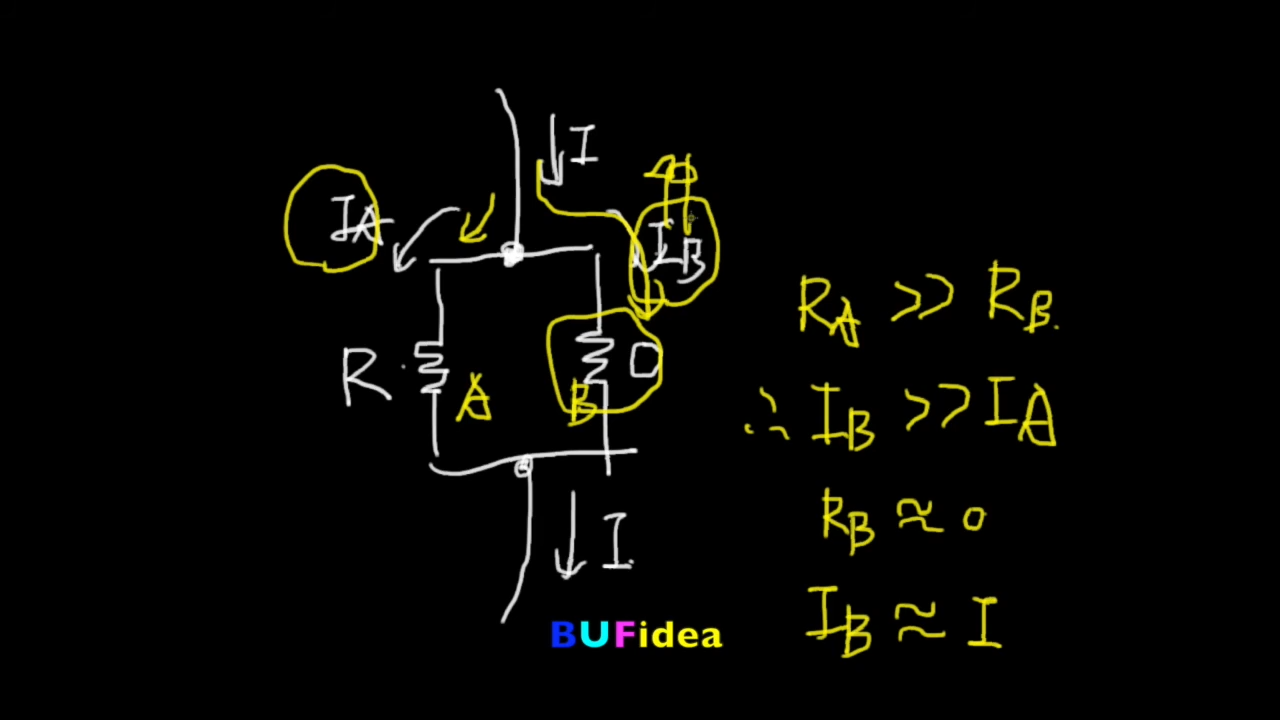 I
I_A
I_B
R_A >> R_B.
R
A
B
0
∴ I_B >> I_A
R_B ≈ 0
I.
I_B ≈ I
BUFidea